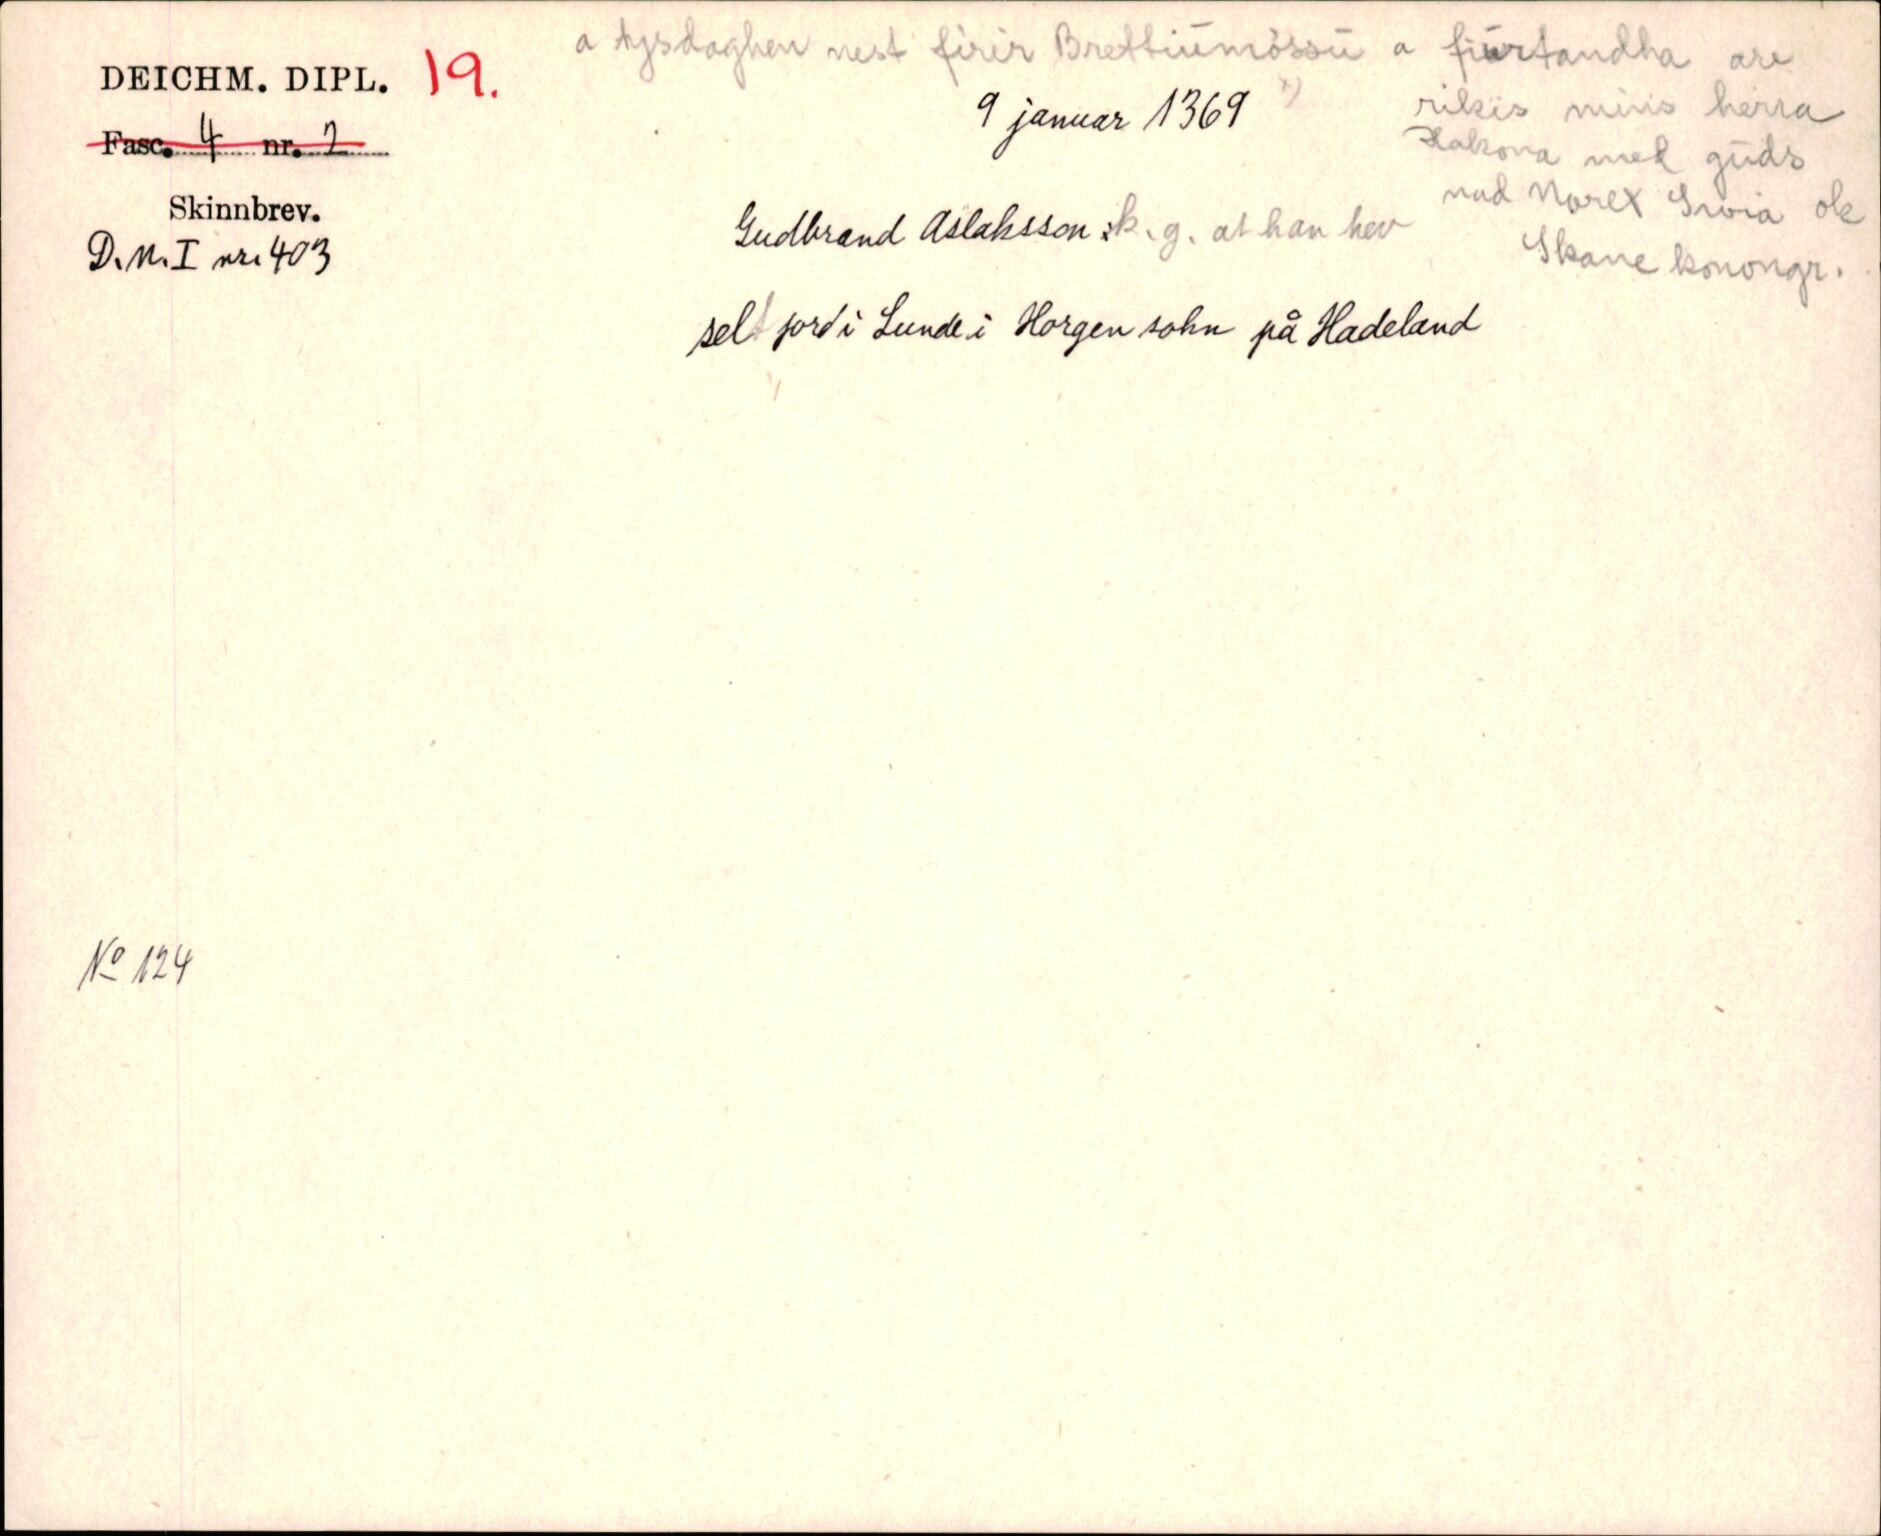 DEICHM. DIPL. 19.
Fasc. 4 nr. 2
Skinnbrev.
D.N. I nr. 403
a tysdaghen nest firir Brettiumössu a fiurtandha are
rikis mins herra
Hakona med guds
nad Norex Swia ok
Skane konongr.
9 januar 1369
Gudbrand Aslaksson : k. g. at han hev
selt jord i Lunde i Horgen sokn på Hadeland
No 124